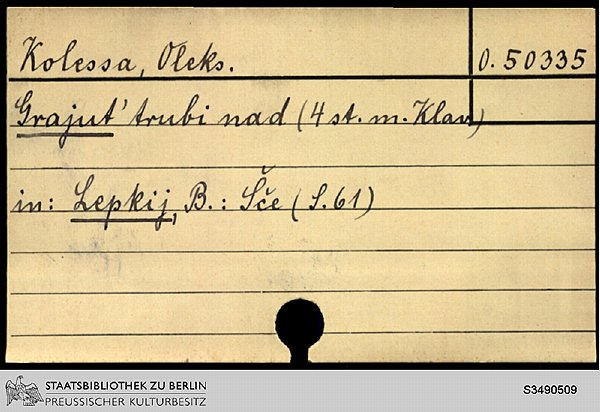 Kolessa, Oleks.
O. 50335
Grajut' trubi nad (4 st. m. Klav)
in: Lepkij, B.: Šče (S. 61)
STAATSBIBLIOTHEK ZU BERLIN
PREUSSISCHER KULTURBESITZ
S3490509